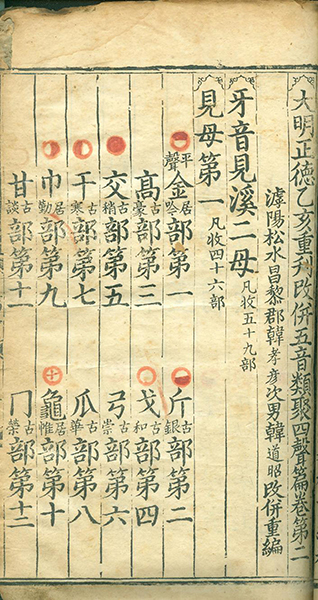 大明正德乙亥重刋改併五音類聚四聲篇卷第二
滹陽松水昌黎郡韓孝彦次男韓道昭改併重編
牙音見溪二母凡收五十九部
見母第一凡收四十六部
平聲金居吟部第一 斤古銀部第二
高古豪部第三 戈古和部第四
交古稍部第五 弓古崇部第六
干古寒部第七 瓜古華部第八
巾居勤部第九 龜居惟部第十
甘古談部第十一 冂古縈部第十二